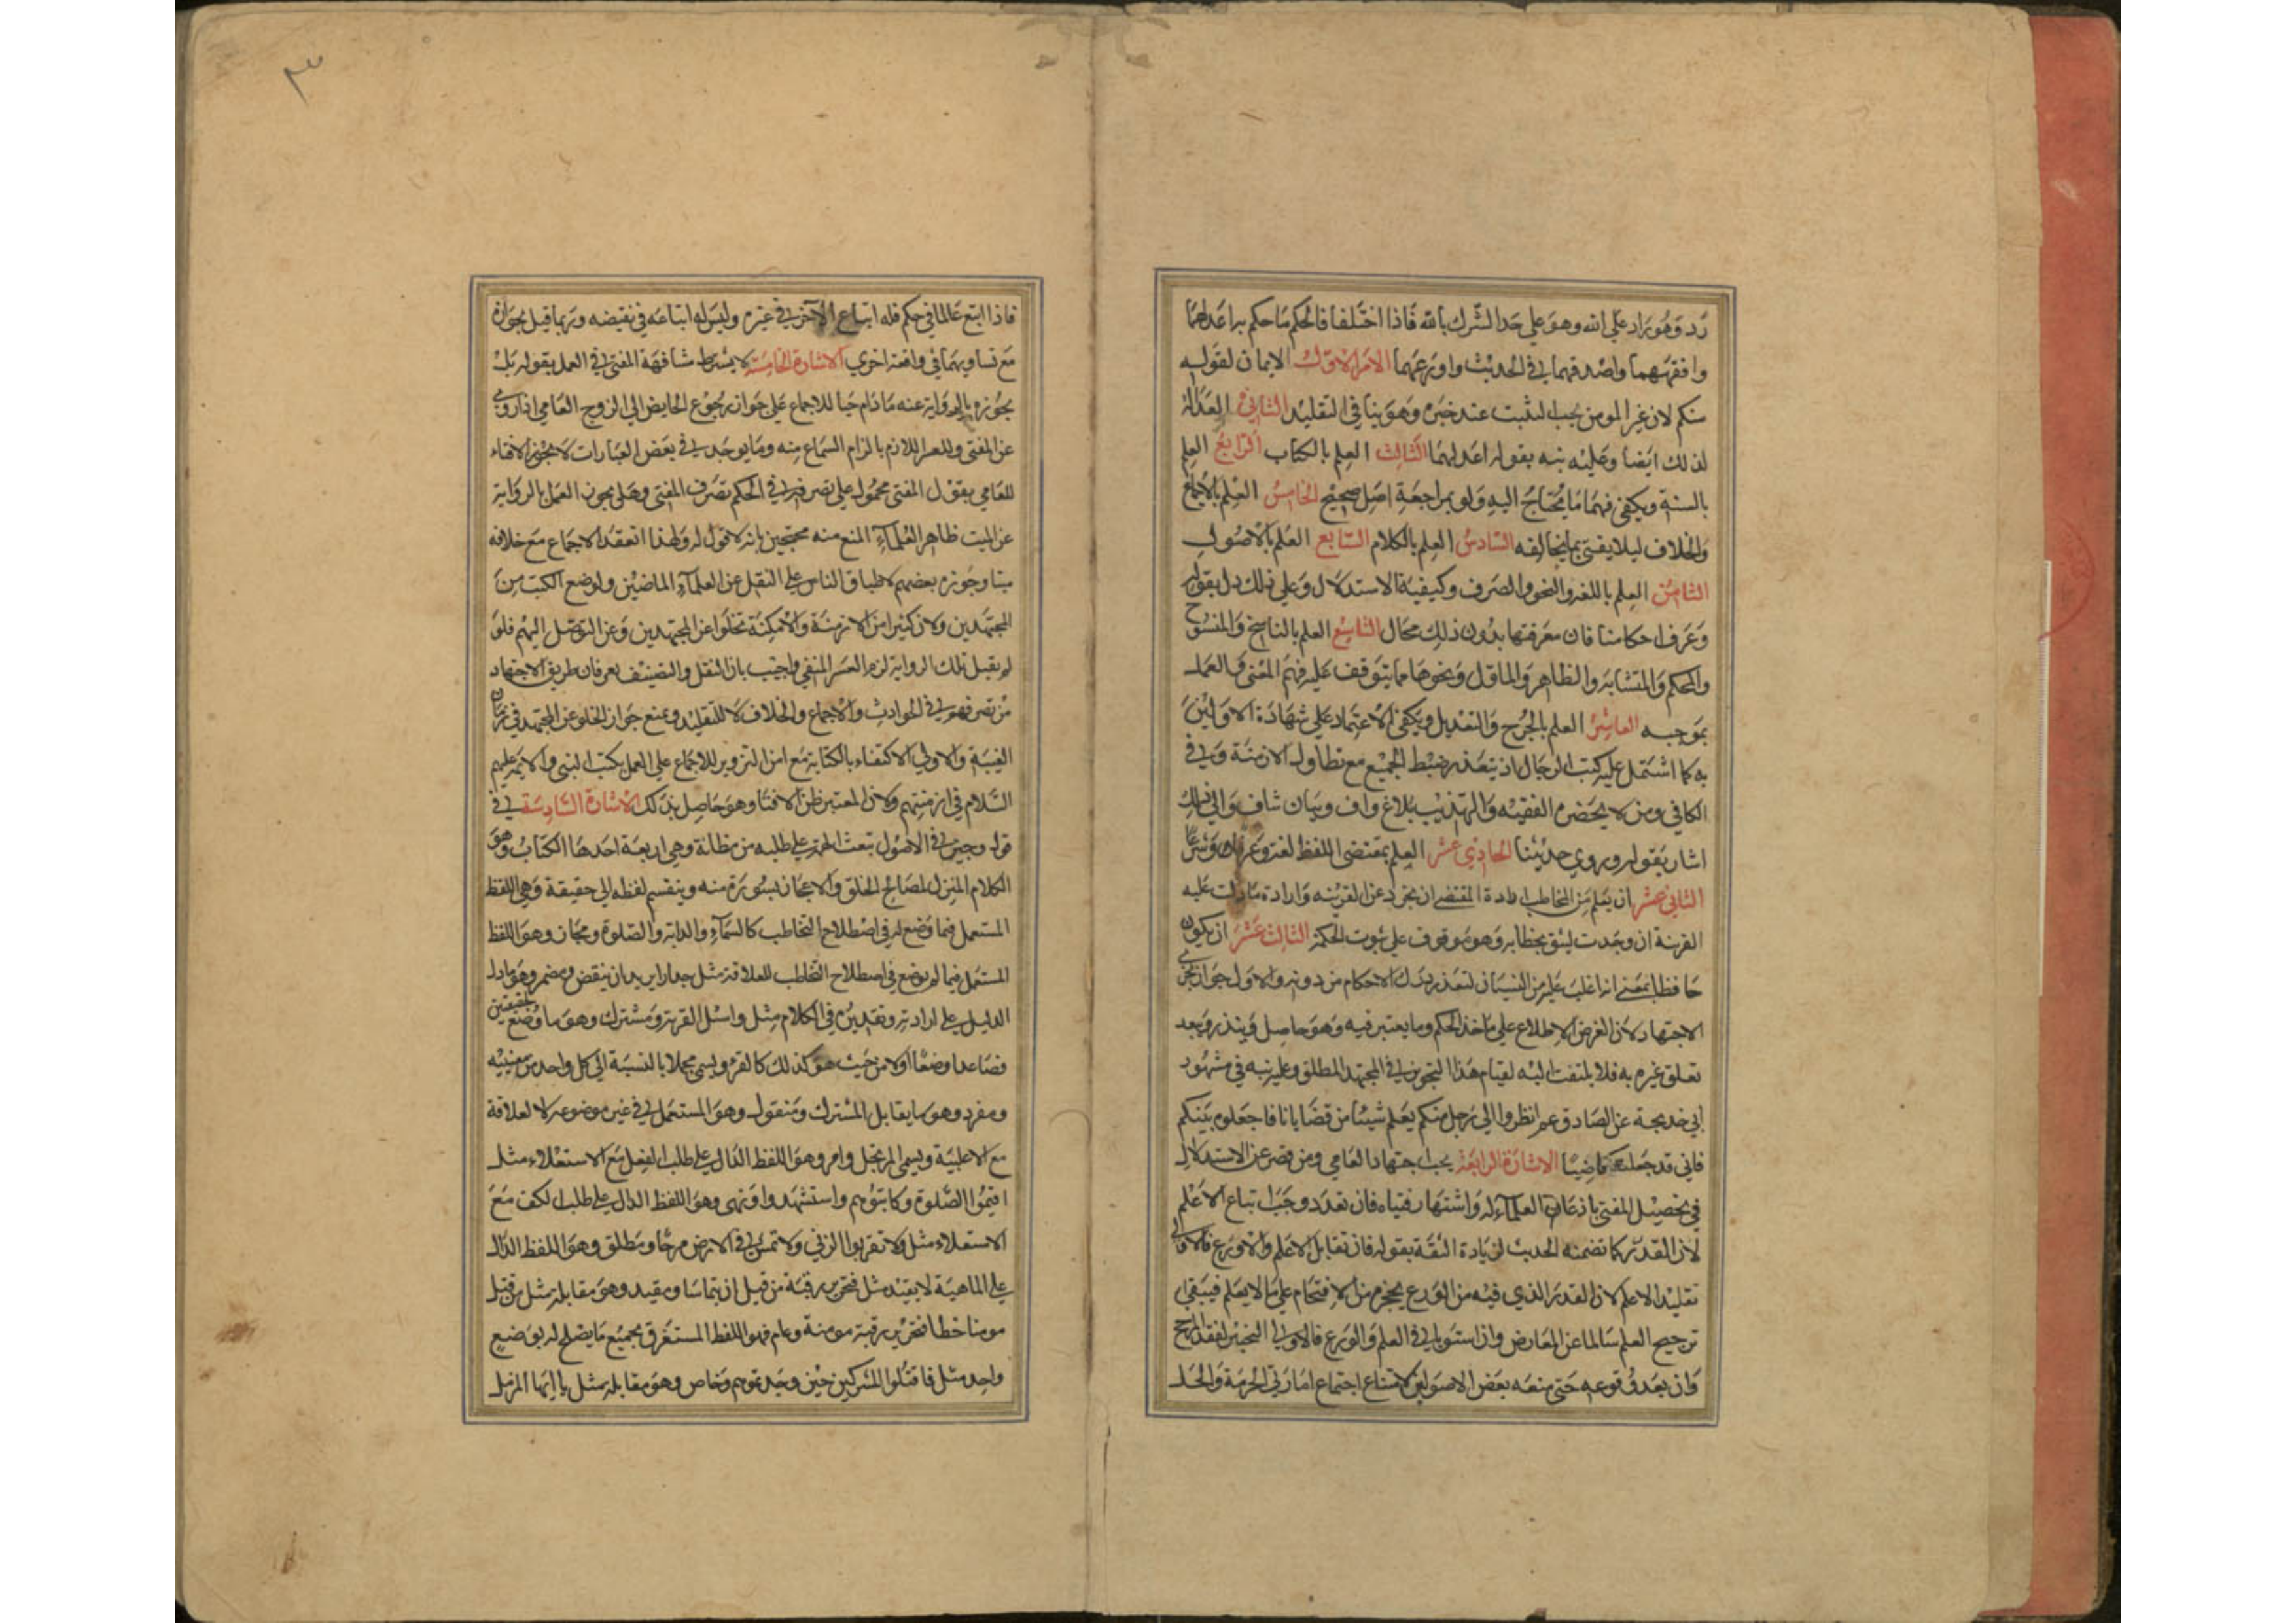 رد وهو راد علي الله وهو علي حد الشرك بالله فاذا اختلفا فالحكم ما حكم به اعدلهما
وافقههما واصدقهما في الحديث واورعهما الامر الاول الايمان لقوله
منكم لان غير المومن يجب التثبت عند خبره وهو ينافي التقليد الثاني العدالة
لذلك ايضا وعليه نبه بقوله اعدلهما الثالث العلم بالكتاب الرابع العلم
بالسنة ويكفي فيهما ما يحتاج اليه ولو بمراجعة اصل صحيح الخامس العلم بالاجماع
والخلاف ليلا يفتي بما يخالفه السادس العلم بالكلام السابع العلم بالاصول
الثامن العلم باللغة والنحو والصرف وكيفية الاستدلال وعلي ذلك دل بقوله
وعرف احكامنا فان معرفتها بدون ذلك محال التاسع العلم بالناسخ والمنسوخ
والمحكم والمتشابه والظاهر والماول ونحوها مما يتوقف عليه فهم المعني والعمل
بموجبه العاشر العلم بالجرح والتعديل ويكفي الاعتماد علي شهادة الاولين
به كما اشتمل عليه كتب الرجال اذ يتعذر ضبط الجميع مع تطاول الازمنة وفي
الكافي ومن لا يحضره الفقيه والتهذيب بلاغ واف وبيان شاف والي ذلك
اشار بقوله وروي حديثنا الحادي عشر العلم بمقتضي اللفظ لغة وعرفا وشرعا
الثاني عشر ان يعلم من المخاطب ارادة المقتضي ان تجرد عن القرينه وارادة ما دلت عليه
القرينة ان وجدت ليثق بخطابه وهو موقوف علي ثبوت الحكمة الثالث عشر ان يكون
حافظا بمعني انه اغلب عليه من النسيان لتعذر درك الاحكام من دونه والاولي جواز تجزي
الاجتهاد لان الغرض الاطلاع علي ماخذ الحكم وما يعتبر فيه وهو حاصل ويندر ويبعد
تعلق غيره به فلا يلتفت اليه لقيام هذا التجويز في المجتهد المطلق وعليه نبه في مشهور
ابي خديجة عن الصادق عم انظروا الي رجل منكم يعلم شيئا من قضايانا فاجعلوه بينكم
فاني قد جعلته قاضيا الاشارة الرابعة يجب اجتهاد العامي ومن قصر عن الاستدلال
في تحصيل المفتي باذعان العلماء له واشتهار فتياه فان تعدد وجب اتباع الاعلم
لان القدر كما تضمنه الحديث لزيادة الثقة بقوله فان تقابل الاعلم والاورع فالاولي
تقليد الاعلم لان القدر الذي فيه من الورع يحجزه من الافتحام علي ما لا يعلم فيبقي
ترجيح العلم سالما عن المعارض وان استويا في العلم والورع فالاولي التخيير لفقد المرجح
وان بعد وقوعه حتي منعه بعض الاصوليين لامتناع اجتماع امارتي الحرمة والحل
فاذا اتبع عالما في حكم فله اتباع الآخر في غيره وليس له اتباعه في نقيضه وربما قيل بجوازه
مع تساويهما في واقعة اخري الاشارة الخامسة لا يشترط مشافهة المفتي في العمل بقوله بل
يجوز بالرواية عنه ما دام حيا للاجماع علي جواز رجوع الحايض الي الزوج العامي اذا روي
عن المفتي وللعسر اللازم بالزام السماع منه وما يوجد في بعض العبارات لا يجوز الافتاء
للعامي بقول المفتي محمول علي تصرفه في الحكم تصرف المفتي وهل يجوز العمل بالرواية
عن الميت ظاهر العلماء المنع منه محتجين بانه لا قول له ولهذا انعقد الاجماع مع خلافه
ميتا وجوزه بعضهم لاطباق الناس علي النقل عن العلماء الماضين ولوضع الكتب من
المجتهدين ولان كثيرا من الازمنة والامكنة تخلوا عن المجتهدين وعن التوصل اليهم فلو
لم يقبل تلك الرواية لزم العسر المنفي واجيب بان النقل والتصنيف يعرفان طريق الاجتهاد
من تصرفهم في الحوادث والاجماع والخلاف لا للتقليد ويمنع جواز الخلو عن المجتهد في زمان
الغيبة والاولي الاكتفاء بالكتابة مع امن التزوير للاجماع علي العمل بكتب النبي والايمه عليهم
السلام في ازمنتهم ولان المعتبر ظن الافتا وهو حاصل بذلك الاشارة السادسة في
قول وجيز في الاصول تبعث الهمة علي طلبه من مظانه وهي اربعة احدها الكتاب وهو
الكلام المنزل لمصالح الخلق والاعجاز بسورة منه وينقسم لفظه الي حقيقة وهي اللفظ
المستعمل فيما وضع له في اصطلاح التخاطب كالسماء والدابة والصلوة ومجاز وهو اللفظ
المستعمل فيما لم يوضع في اصطلاح التخاطب للعلاقة مثل جدارا يريد ان ينقض ومضمر وهو ما دل
الدليل علي ارادته وتقديره في الكلام مثل واسئل القرية ومشترك وهو ما وضع لحقيقتين
فصاعدا وضعا اولا من حيث هو كذلك كالقرؤ ويسمي مجملا بالنسبة الي كل واحد من معنييه
ومفرد وهو ما يقابل المشترك ومنقول وهو المستعمل في غير موضوعه لا لعلاقة
مع الاغلبية ويسمي المرتجل وامر وهو اللفظ الدال علي طلب الفعل مع الاستعلاء مثل
اقيموا الصلوة وكاتبوهم واستشهدوا ونهي وهو اللفظ الدال علي طلب الكف مع
الاستعلاء مثل ولا تقربوا الزني ولا تمش في الارض مرحا ومطلق وهو اللفظ الدال
علي الماهية لا بقيد مثل فتحرير رقبة من قبل ان يتماسا ومقيد وهو مقابله مثل من قتل
مومنا خطا فتحرير رقبة مومنة وعام فهو اللفظ المستغرق لجميع ما يصلح له بوضع
واحد مثل فاقتلوا المشركين حيث وجدتموهم وخاص وهو مقابله مثل يا ايها المزمل